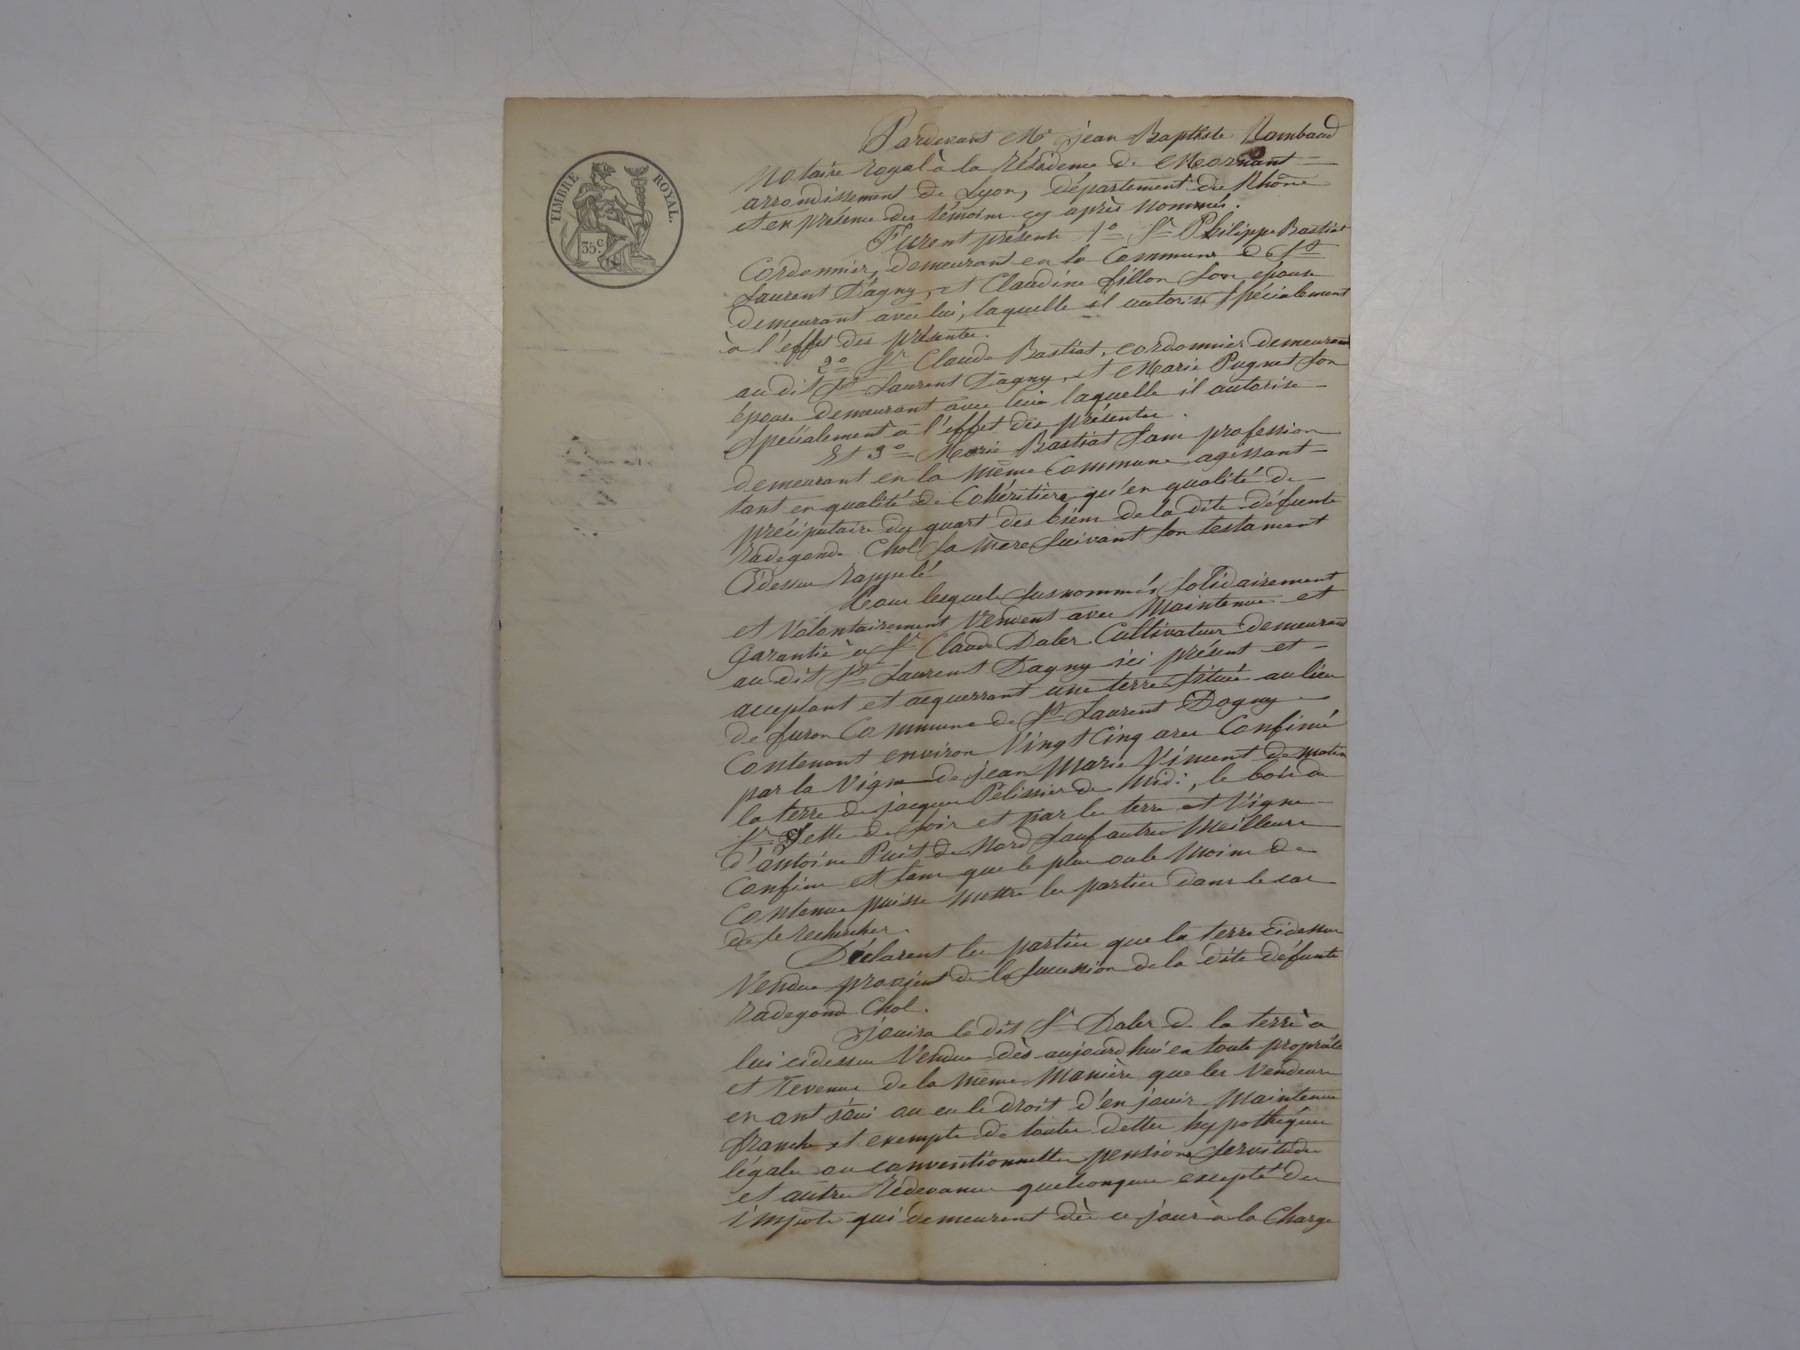 TIMBRE ROYAL.
35c
Pardevant Me jean Baptiste Rambaud
Notaire royal à la résidence de Mornant
arrondissement de Lyon, département du Rhône
et en présence des témoins cy après nommés.
Furent présents 1o Sr Philippe Bastiat
Cordonnier, demeurant en la Commune de St
Laurent D'agny, et Claudine fillon son épouse
demeurant avec lui, laquelle il autorise spécialement
à l'effet des présentes.
2o Sr Claude Bastiat, cordonnier demeurant
au dit St Laurent D'agny, et Marie Pugnet son
épouse demeurant avec lui laquelle il autorise
spécialement à l'effet des présentes.
Et 3o Marie Bastiat sans profession
demeurant en la même Commune agissant
tant en qualité de Cohéritière qu'en qualité de
préciputaire du quart des biens de la dite défunte
radegonde Chol sa mère suivant son testament
Cidessus rappelé
Tous lesquels susnommés solidairement
et Volontairement Vendent avec Maintenue et
garantie à Sr Claude Daler Cultivateur demeurant
au dit St Laurent Dagny ici présent et
acceptant et acquerrant une terre située au lieu
de furon Commune de St Laurent Dagny
Contenant environ Vingt Cinq ares Confiné
par la Vigne de jean Marie Vincent de matin
la terre de jacques Pélissier de Midi, le bois de
Sr de soir et par les terre et Vigne
d'antoine Puit de Nord sauf autres Meilleurs
Confins et sans que le plus ou le Moins de
Contenue puisse mettre les parties dans le cas
de se rechercher.
Déclarent les parties que la terre cidessus
Vendue provient de la succession de la dite défunte
radegonde Chol.
jouira le dit Sr Daler de la terre à
lui cidessus Vendue dès aujourd'hui en toute propriété
et revenus de la même Manière que les Vendeurs
en ont joui ou eu le droit d'en jouir Maintenue
franche et exempte de toutes dettes hypothèques
légales ou conventionnelles pensions servitudes
et autres redevances quelconques excepté des
impôts qui demeurent dès ce jour à la Charge